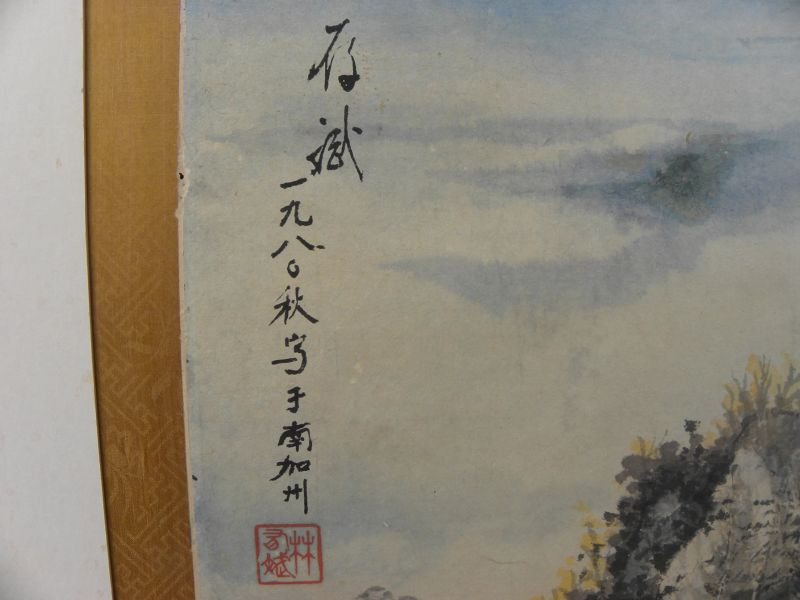 存斌
一九八〇秋写于南加州
林
斌